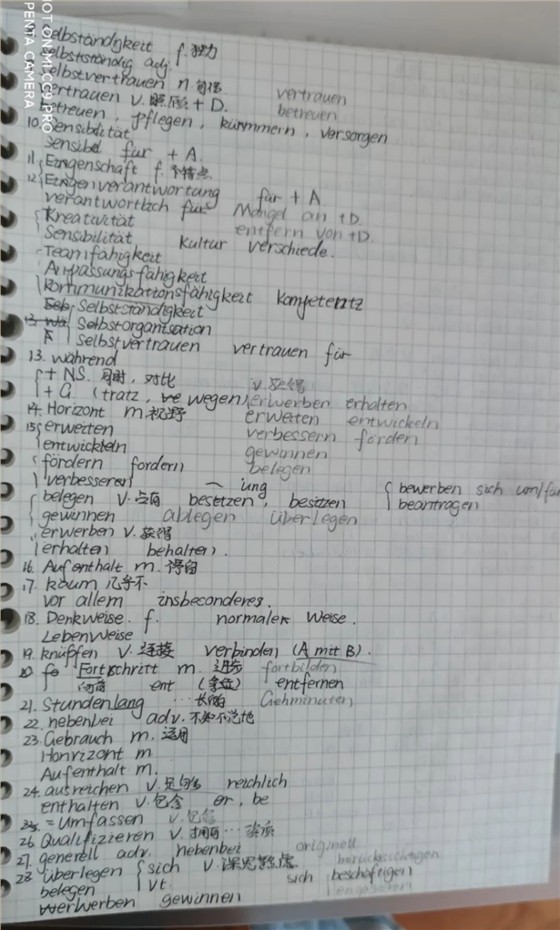 Selbständigkeit f. 独力
selbstständig adj.
Selbstvertrauen n. 自信
vertrauen v. 照顾 + D. vertrauen
betreuen, pflegen, kümmern, versorgen betreuen
10. Sensibilität
sensibel für + A.
11. Eigenschaft f. 个特点
12. Eigenverantwortung für + A
verantwortlich für Mangel an + D.
Kreativität entfern von + D
Sensibilität Kultur verschiede.
Teamfähigkeit
Anpassungsfähigkeit
kommunikationsfähigkeit kompetentz
Selbstständigkeit
Selbstorganisation
selbstvertrauen vertrauen für
13. während
+ NS. 同时, 对比 v.
+ G. (tratz, wegen) erwerben erhalten
14. Horizont m. 视野 erweiten entwickeln
15 erweiten verbessern förden
entwickeln gewinnen
fördern fordern belegen
verbesseren ung bewerben sich um/für
belegen v. 占有 besetzen, besitzen beantragen
gewinnen ablegen überlegen
erwerben v. 获得
erhalten behalten.
16. Aufenthalt m. 停留
17. kaum 几乎不
vor allem insbesonderes.
18. Denkweise. f. normaler Weise.
LebenWeise
19. knüpfen v. 连接 verbinden (A mit B).
20 Fortschritt m. 进步 fortbilden
ent entfernen
21. Stundenlang 长 Gehminuten
22. nebenbei adv. 不知不觉地
23. Gebrauch m. 运用
Honrizont m
Aufenthalt m.
24. ausreichen v. 足够 reichlich
enthalten v. 包含 er, be
25. = umfassen v. 包含
26 Qualifizieren v. 拥有…
27. generell adv. nebenbei originell
28 überlegen sich v. 深思熟虑
belegen vt. sich beschäftigen
werwerben gewinnen